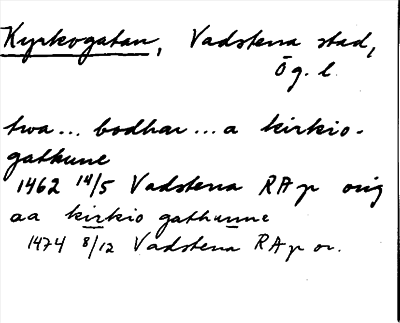 Kyrkogatan, Vadstena stad,
Ög. l.
twa... bodhar... a kirkio-
gathune
1462 14/5 Vadstena RAp orig
aa kirkio gathunne
1474 8/12 Vadstena RAp or.